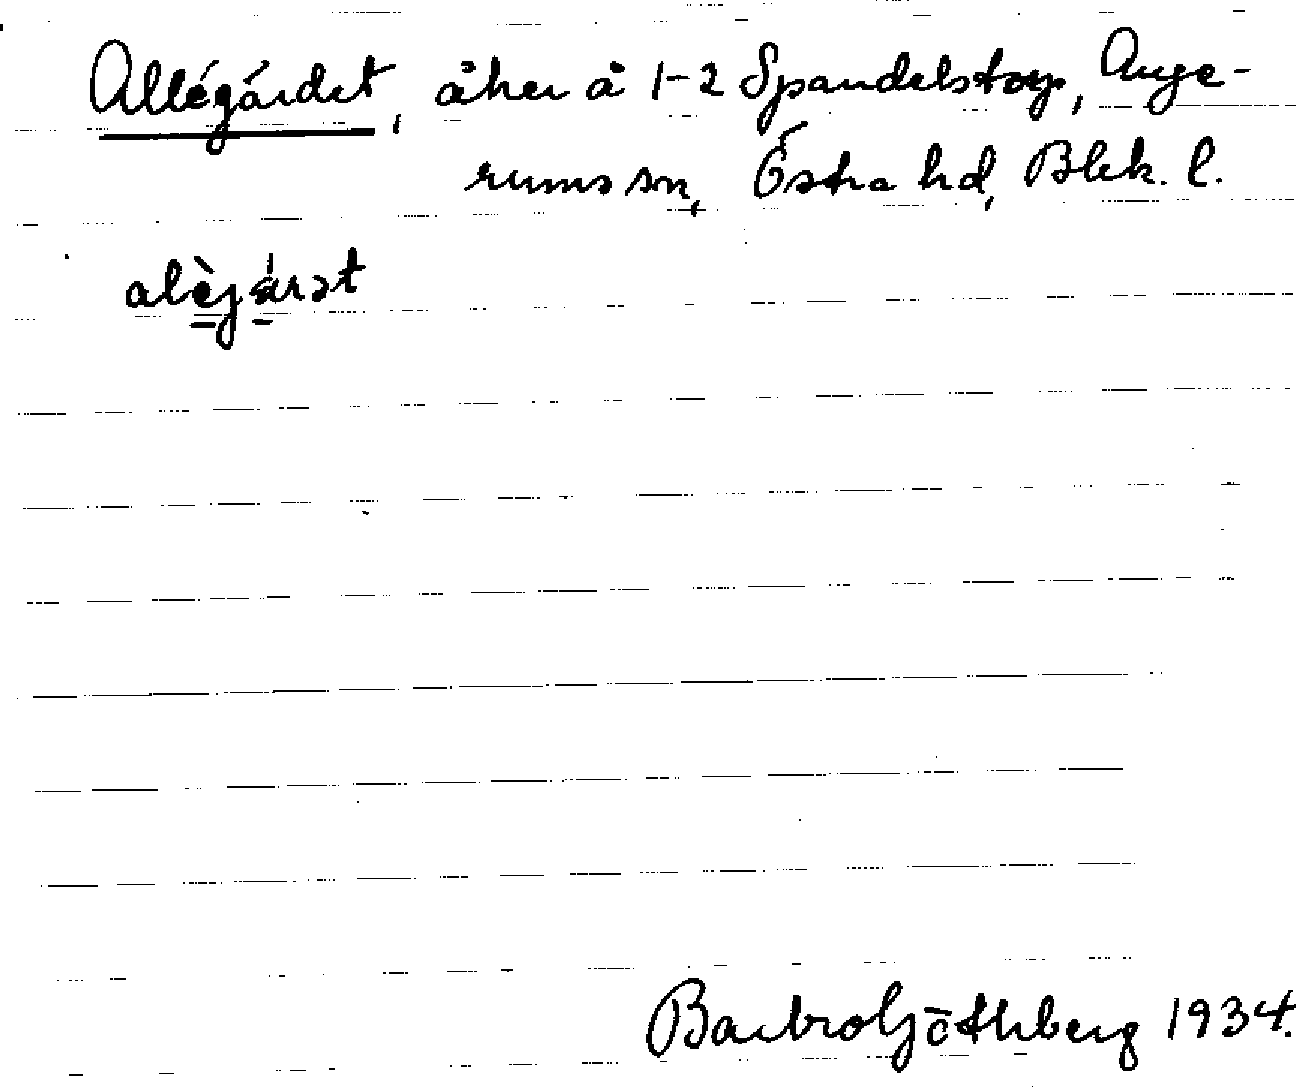 Allégärdet, åker å 1-2 Spandelstorp, Auge-
rums sn, Östra hd, Blek. l.
alègärət
Barbro Göthberg 1934.